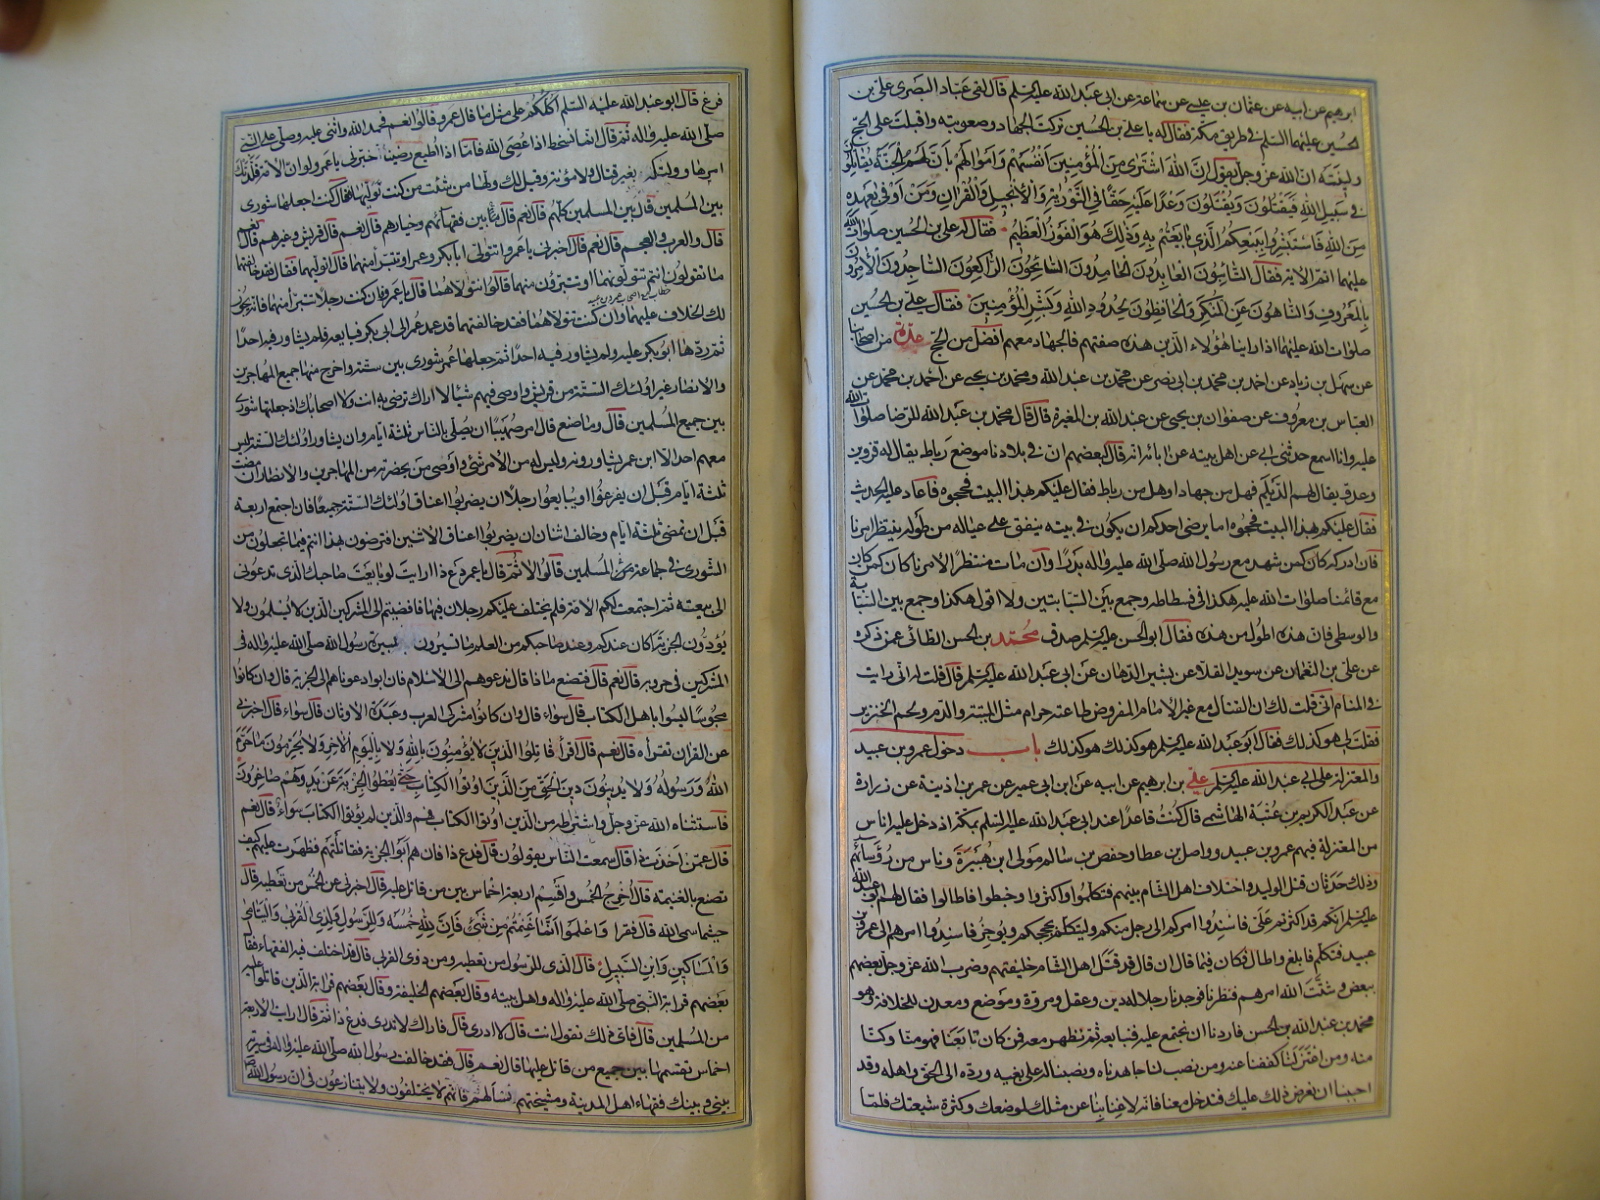 ابرهيم عن ابيه عن عثمان بن عيسى عن سماعة عن ابى عبد الله عليه السلم قال لقى عباد البصرى على بن
الحسين عليهما السلم فى طريق مكة فقال له يا على بن الحسين تركت الجهاد وصعوبته واقبلت على الحج
ولينته ان الله عز وجل يقول ان الله اشترى من المؤمنين انفسهم واموالهم بان لهم الجنة يقاتلون
فى سبيل الله فيقتلون ويقتلون وعدا عليه حقا فى التورية والانجيل والقران ومن اوفى بعهده
من الله فاستبشروا ببيعكم الذى بايعتم به وذلك هو الفوز العظيم فقال له على بن الحسين صلوات الله
عليهما اتم الاية فقال التائبون العابدون الحامدون السائحون الراكعون الساجدون الآمرون
بالمعروف والناهون عن المنكر والحافظون لحدود الله وبشر المؤمنين فقال على بن الحسين
صلوات الله عليهما اذا راينا هؤلاء الذين هذه صفتهم فالجهاد معهم افضل من الحج عدة من اصحابنا
عن سهل بن زياد عن احمد بن محمد بن ابى نصر عن محمد بن عبد الله ومحمد بن يحيى عن احمد بن محمد عن
العباس بن معروف عن صفوان بن يحيى عن عبد الله بن المغيرة قال قال محمد بن عبد الله للرضا صلوات الله
عليه وانا اسمع حدثنى ابى عن اهل بيته عن ابائه انه قال لبعضهم ان فى بلادنا موضع رباط يقال له قزوين
وعدو يقال لهم الديلم فهل من جهاد او هل من رباط فقال عليكم بهذا البيت فحجوه فاعاد عليه الحديث
فقال عليكم بهذا البيت فحجوه اما يرضى احدكم ان يكون فى بيته ينفق على عياله من طوله ينتظر امرنا
فان ادركه كان كمن شهد مع رسول الله صلى الله عليه واله بدرا وان مات منتظرا لامرنا كان كمن كان
مع قائمنا صلوات الله عليه هكذا فى فسطاطه وجمع بين السبابتين ولا اقول هكذا وجمع بين السبابة
والوسطى فان هذه اطول من هذه فقال ابو الحسن عليه السلم صدق محمد بن الحسن الطائى عمن ذكره
عن على بن النعمان عن سويد القلا عن بشير الدهان عن ابى عبد الله عليه السلم قال قلت له انى رايت
فى المنام انى قلت لك ان القتال مع غير الامام المفروض طاعته حرام مثل الميتة والدم ولحم الخنزير
فقلت لى هو كذلك فقال ابو عبد الله عليه السلم هو كذلك هو كذلك باب دخول عمرو بن عبيد
والمعتزلة على ابى عبد الله عليه السلم على بن ابرهيم عن ابيه عن ابن ابى عمير عن عمر بن اذينة عن زرارة
عن عبد الكريم بن عتبة الهاشمى قال كنت قاعدا عند ابى عبد الله عليه السلم بمكة اذ دخل عليه اناس
من المعتزلة فيهم عمرو بن عبيد وواصل بن عطا وحفص بن سالم مولى ابن هبيرة وناس من رؤسائهم
وذلك حدثان قتل الوليد واختلاف اهل الشام بينهم فتكلموا واكثروا وخبطوا فاطالوا فقال لهم ابو عبد الله
عليه السلم انكم قد اكثرتم على فاسندوا امركم الى رجل منكم وليتكلم بحججكم ويوجز فاسندوا امرهم الى عمرو بن
عبيد فتكلم فابلغ واطال فكان فيما قال ان قال قد قتل اهل الشام خليفتهم وضرب الله عز وجل بعضهم
ببعض وشتت الله امرهم فنظرنا فوجدنا رجلا له دين وعقل ومروة وموضع ومعدن للخلافة وهو
محمد بن عبد الله بن الحسن فاردنا ان نجتمع عليه فنبايعه ثم نظهر معه فمن كان تابعنا فهو منا وكنا
منه ومن اعتزلنا كففنا عنه ومن نصب لنا جاهدناه ونصبنا له على بغيه ورده الى الحق واهله وقد
احببنا ان نعرض ذلك عليك فتدخل معنا فانه لا غنا بنا عن مثلك لموضعك وكثرة شيعتك فلما
فرغ قال ابو عبد الله عليه السلم اكلكم على مثل ما قال عمرو قالوا نعم فحمد الله واثنى عليه وصلى على النبى
صلى الله عليه واله ثم قال انما نسخط اذا عصى الله فاما اذا اطيع رضينا اخبرنى يا عمرو لو ان الامة قلدتك
امرها وولتك بغير قتال ولا مؤنة وقيل لك ولها من شئت من كنت توليها قال كنت اجعلها شورى
بين المسلمين قال بين المسلمين كلهم قال نعم قال بين فقهائهم وخيارهم قال نعم قال قريش وغيرهم قال نعم
قال والعرب والعجم قال نعم قال اخبرنى يا عمرو اتتولى ابا بكر وعمر او تتبرا منهما قال اتوليهما فقال فقد خالفتهما
ما تقولون انتم تتولونهما او تتبرؤن منهما قالوا نتولاهما قال يا عمرو ان كنت رجلا تتبرأ منهما فانه يجوز
لك الخلاف عليهما وان كنت تتولاهما فقد خالفتهما قد عهد عمر الى ابى بكر فبايعه فلم يشاور فيه احدا
ثم ردها ابو بكر عليه ولم يشاور فيه احدا ثم جعلها عمر شورى بين ستة واخرج منها جميع المهاجرين
والانصار غير اولئك الستة من قريش واوصى فيهم شيئا لا اراك ترضى به انت ولا اصحابك اذ جعلتها شورى
بين جميع المسلمين قال وما صنع قال امر صهيبا ان يصلى بالناس ثلثة ايام وان يشاور اولئك الستة ليس
معهم احد الا ابن عمر يشاورونه وليس له من الامر شئ واوصى من بحضرته من المهاجرين والانصار ان مضت
ثلثة ايام قبل ان يفرغوا او يبايعوا رجلا ان يضربوا اعناق اولئك الستة جميعا فان اجتمع اربعة
قبل ان تمضى ثلثة ايام وخالف اثنان ان يضربوا اعناق الاثنين افترضون بهذا انتم فيما تجعلون من
الشورى فى جماعة من المسلمين قالوا لا ثم قال يا عمرو دع ذا ارايت لو بايعت صاحبك الذى تدعونى
الى بيعته ثم اجتمعت لكم الامة فلم يختلف عليكم رجلان فيها فافضيتم الى المشركين الذين لا يسلمون ولا
يؤدون الجزية اكان عندكم وعند صاحبكم من العلم ما تسيرون بسيرة رسول الله صلى الله عليه واله فى
المشركين فى حروبه قال نعم قال فتصنع ماذا قال ندعوهم الى الاسلام فان ابوا دعوناهم الى الجزية قال وان كانوا
مجوسا ليسوا باهل الكتاب قال سواء قال وان كانوا مشركى العرب وعبدة الاوثان قال سواء قال اخبرنى
عن القران تقرأه قال نعم قال اقرأ قاتلوا الذين لا يؤمنون بالله ولا باليوم الاخر ولا يحرمون ما حرم
الله ورسوله ولا يدينون دين الحق من الذين اوتوا الكتاب حتى يعطوا الجزية عن يد وهم صاغرون
فاستثناه الله عز وجل واشتراطه من الذين اوتوا الكتاب فهم والذين لم يؤتوا الكتاب سواء قال نعم
قال عمن اخذت ذا قال سمعت الناس يقولون قال فدع ذا فان هم ابوا الجزية فقاتلتهم فظهرت عليهم كيف
تصنع بالغنيمة قال اخرج الخمس واقسم اربعة اخماس بين من قاتل عليه قال اخبرنى عن الخمس من تعطيه قال
حيثما سمى الله قال فقرا واعلموا انما غنمتم من شئ فان لله خمسه وللرسول ولذى القربى واليتامى
والمساكين وابن السبيل قال الذى للرسول من تعطيه ومن ذوى القربى قال قد اختلف فيه الفقهاء فقال
بعضهم قرابة النبى صلى الله عليه واله واهل بيته وقال بعضهم الخليفة وقال بعضهم قرابة الذين قاتلوا عليه
من المسلمين قال فاى ذلك تقول انت قال لا ادرى قال فاراك لا تدرى فدع ذا ثم قال ارايت الاربعة
اخماس تقسمها بين جميع من قاتل عليها قال نعم قال فقد خالفت رسول الله صلى الله عليه واله فى سيرته
بينى وبينك فقهاء اهل المدينة ومشيختهم فسألهم فانهم لا يختلفون ولا يتنازعون فى ان رسول الله